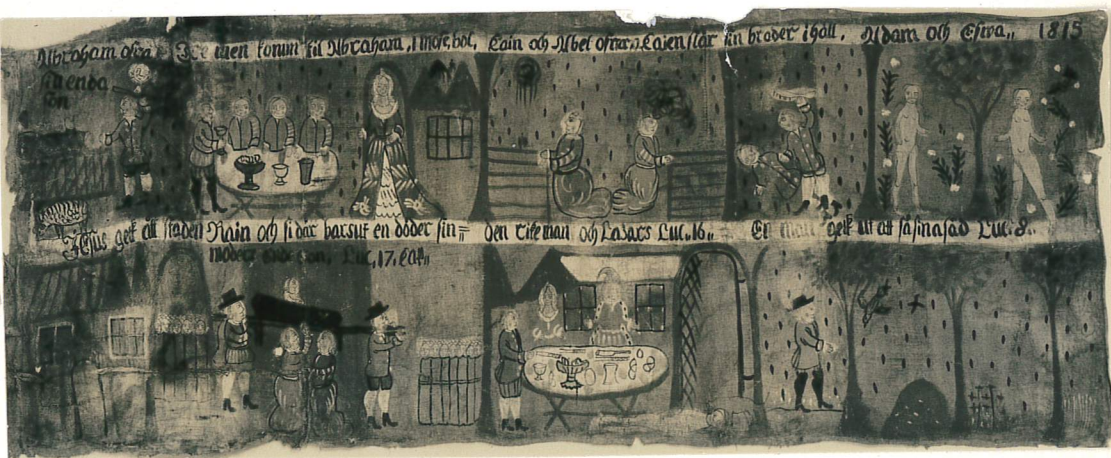 Abraham ofrar
sin enda
son
Tre men komm til Abraham, 1 mose, bok,
Cain och Abel ofrar, Caien slår sin broder ihäll,
Adam och Efwa,, 1815
JEsus gek till staden Nain och si där barsut en döder sin=
moders son, Luc, 17, Cap,,
den rike man och Lasars Luc, 16,,
En man gek ut att så sina säd Luc, 8,,